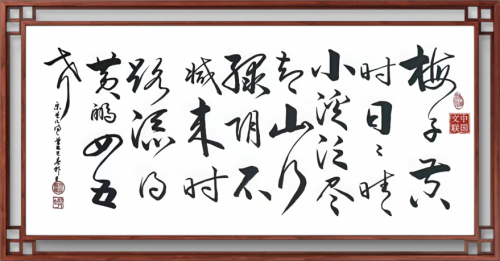 梅子黄
时日々晴
小溪泛尽
却山行
绿阴不
减来时
路添得
黄鹂四五
声
中国文联